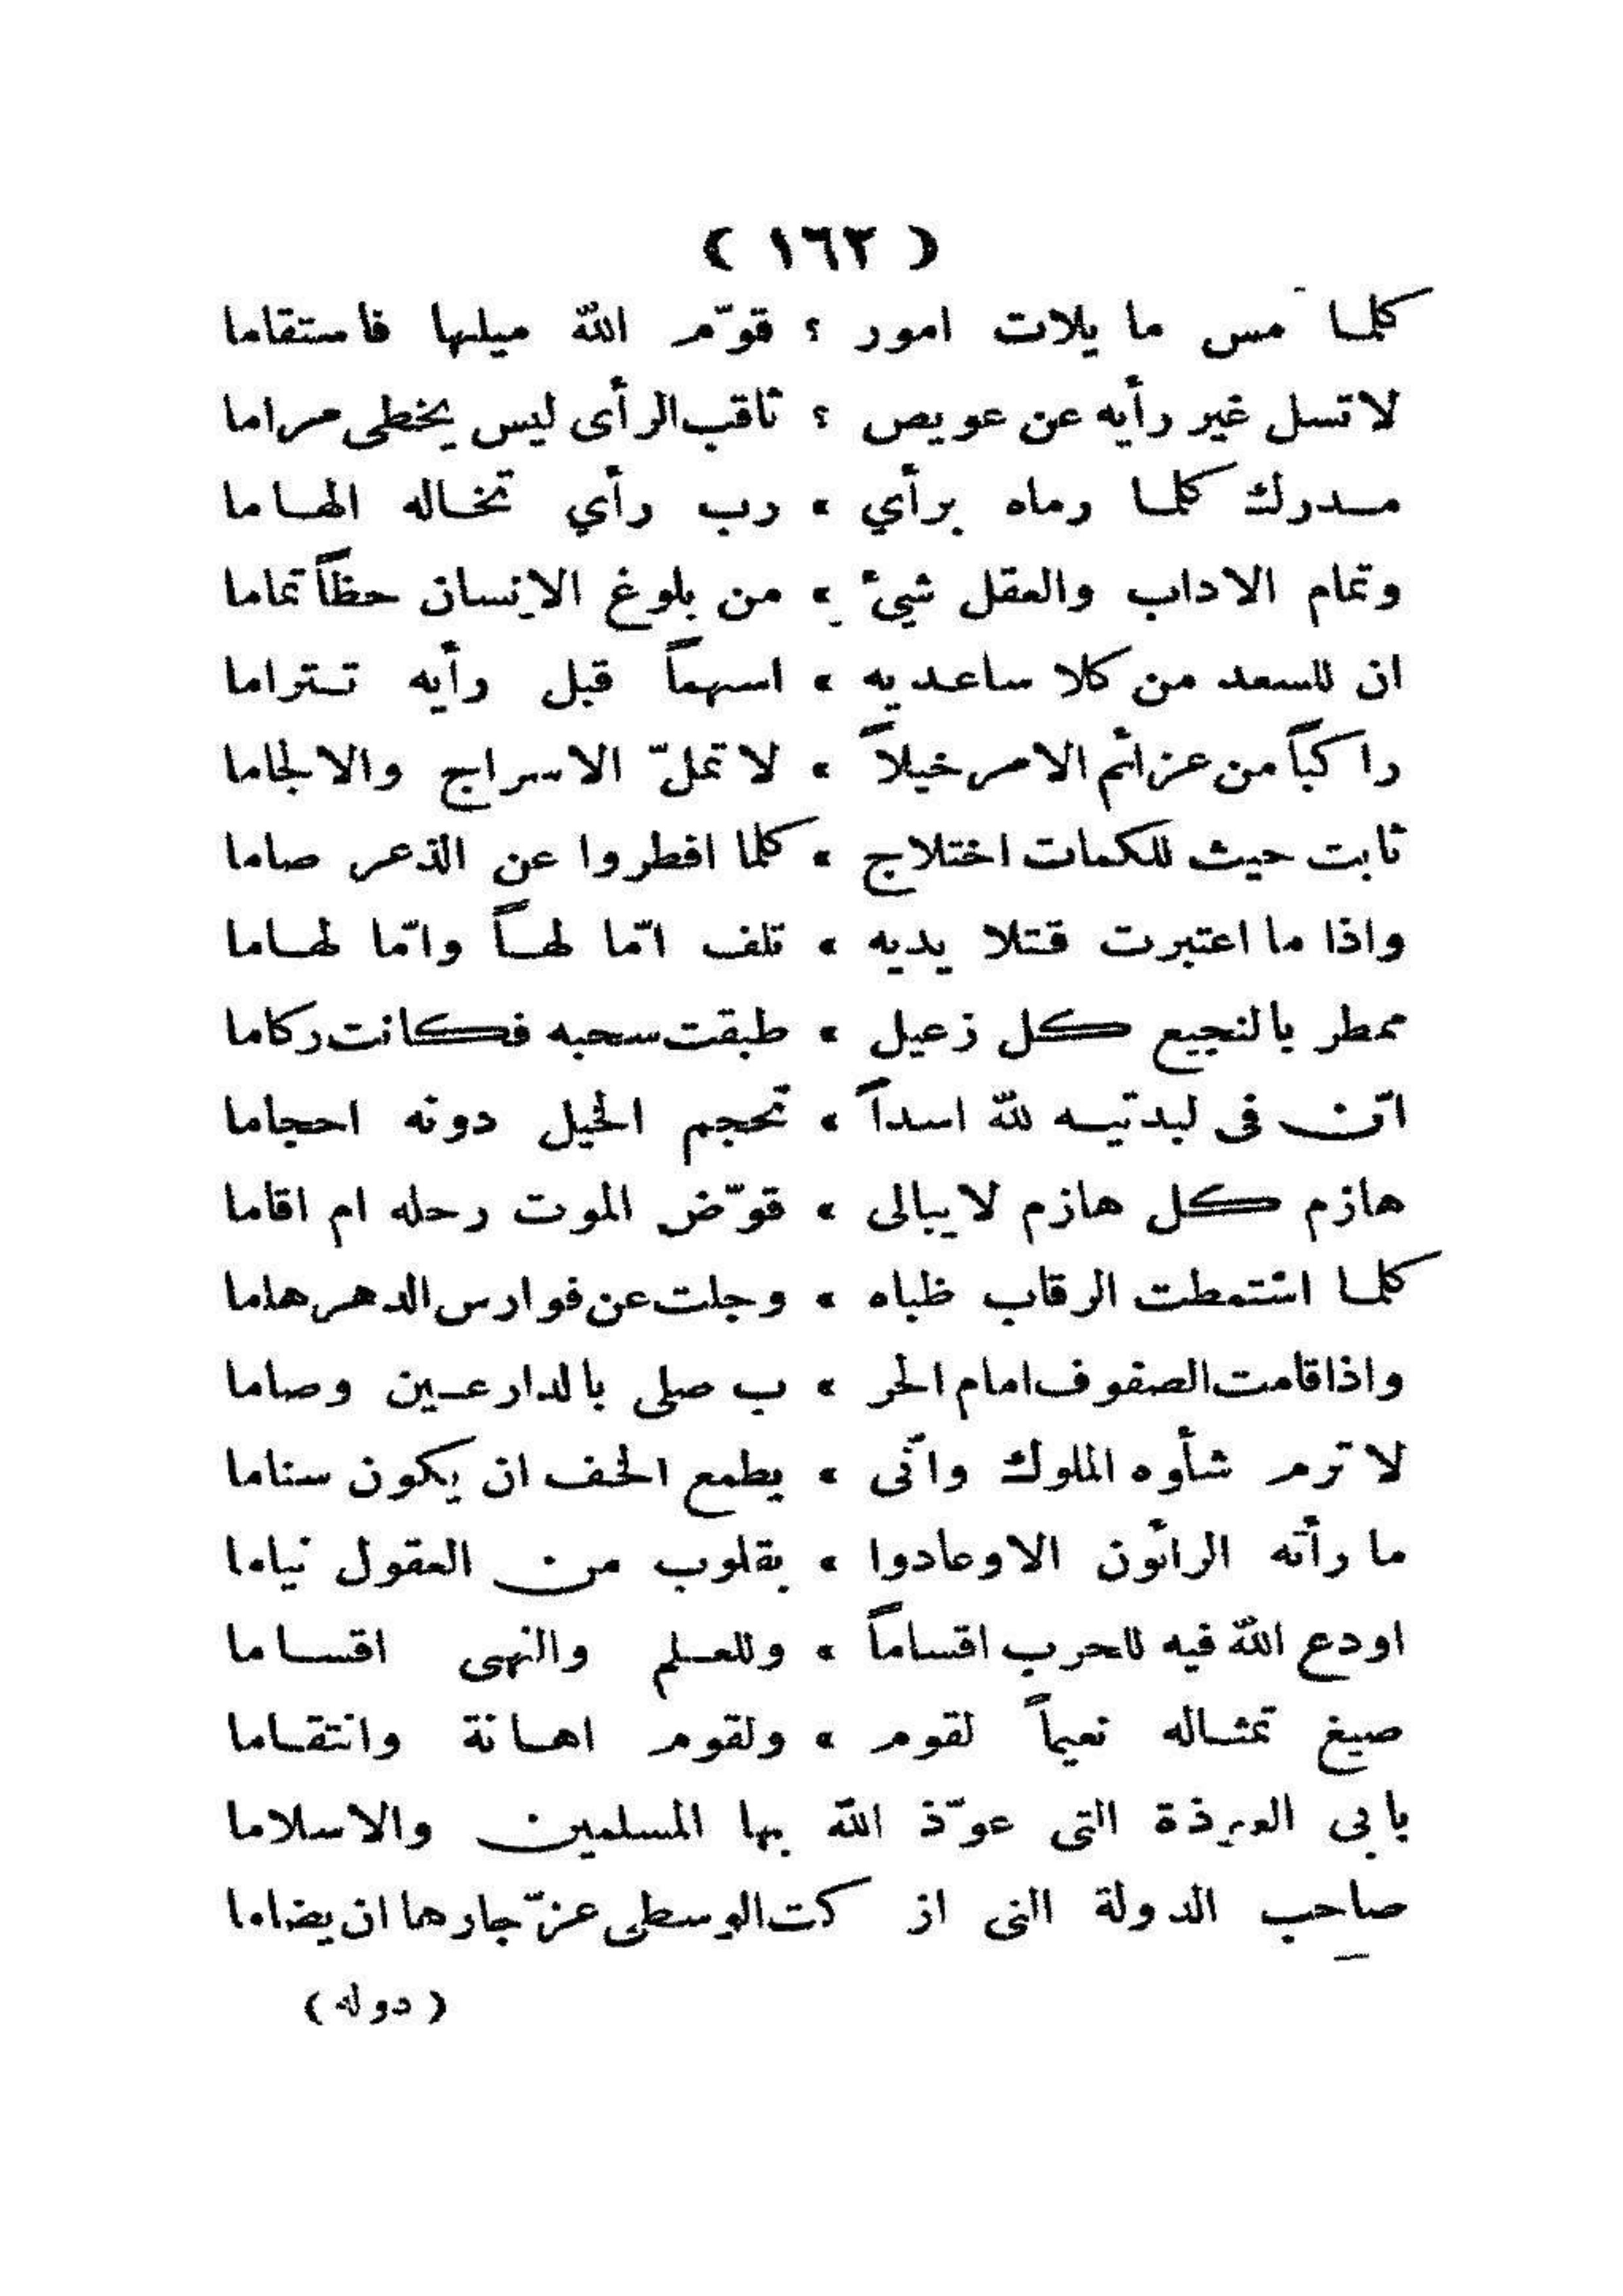 ( ١٦٢ )
كلما مس ما يلات امور ؟ قوّم الله ميلها فاستقاما
لا تسل غير رأيه عن عويص ؟ ثاقب الرأى ليس يخطى مراما
مدرك كلما رماه برأي » رب رأي تخاله الهاما
وتمام الاداب والعقل شيئ » من بلوغ الانسان حظاً تماما
ان للسعد من كلا ساعديه » اسهماً قبل رأيه تتراما
راكباً من عزائم الامر خيلاً » لا تملّ الاسراج والالجاما
ثابت حيث للكمات اختلاج » كلما افطروا عن الذعر صاما
واذا ما اعتبرت قتلا يديه » تلف امّا لهاً وامّا لهاما
ممطر بالنجيع كل زعيل » طبقت سحبه فكانت ركاما
انّ فى لبدتيه لله اسداً » تحجم الخيل دونه احجاما
هازم كل هازم لا يبالى » قوّض الموت رحله ام اقاما
كلما اشتمطت الرقاب ظباه » وجلت عن فوارس الدهر هاما
واذا قامت الصفوف امام الحر » ب صلى بالدارعين وصاما
لا ترم شأوه الملوك وانّى » يطمع الخف ان يكون سناما
ما رأته الرائون الا وعادوا » بقلوب من العقول نياما
اودع الله فيه للحرب اقساماً » وللعلم والنهى اقساما
صيغ تمثاله نعيماً لقوم » ولقوم اهانة وانتقاما
بابى العوذة التى عوّذ الله بها المسلمين والاسلاما
صاحب الدولة التى از كت الوسطى عزّ جارها ان يضاما
( دوله )